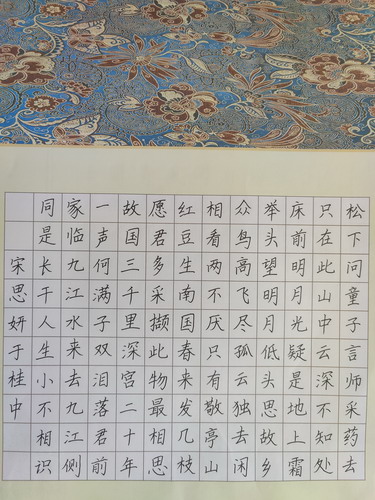 松下问童子言师采药去
只在此山中云深不知处
床前明月光疑是地上霜
举头望明月低头思故乡
众鸟高飞尽孤云独去闲
相看两不厌只有敬亭山
红豆生南国春来发几枝
愿君多采撷此物最相思
故国三千里深宫二十年
一声何满子双泪落君前
家临九江水来去九江侧
同是长干人生小不相识
宋思妍于桂中